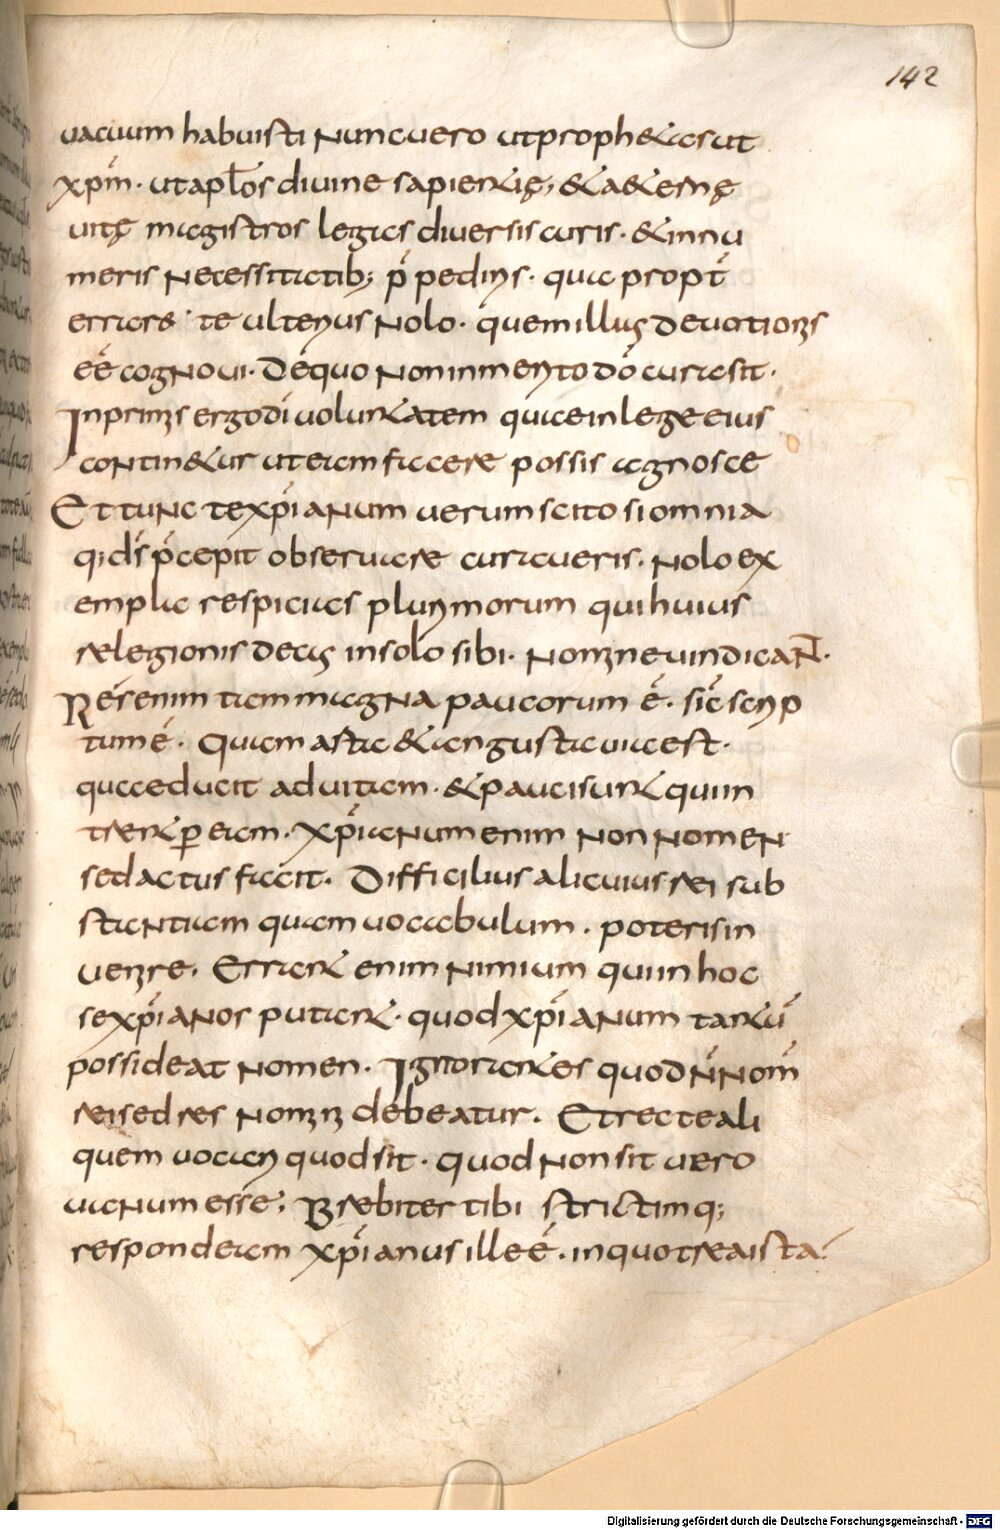 142
uacuum habuisti Nunc uero ut prophetas ut
xpm̄. ut apłos diuine sapientię, & aeternę
uitę magistros legas diuersis curis. & innu
meris Necessitatib; p̄pediris. quia propt̄
errare te ulterius Nolo. quem illius deuotionis
eē cognoui. De quo Non inmerito dō cura sit.
Inprimis ergo dī uoluntatem quae in lege eius
continetur ut eam facere possis agnosce
Et tunc te xp̄ianum uerum scito si omnia
q; ds̄ p̄cepit obseruare curaueris. Nolo ex
empla respicias plurimorum qui huius
relegionis decus in solo sibi. Nomine uindicaNt̄.
Res enim tam magna paucorum ē. sic scrip
tum ē. Quam arta & angusta uia est.
quae ducit ad uitam. & pauci sunt qui in
trent ꝑ eam. xp̄iaNum enim non nomen
sed actus facit. Difficilius alicuius rei sub
stantiam quam uocabulum. poteris in
uenire. Errant enim nimium qui in hoc
se xp̄ianos putant. quod xp̄ianum tantū
possideat nomen. Ignorantes quod n̄ nom̄
rei sed res nomini debeatur. Et recte ali
quem uocari quod sit. quod non sit uero
uanum esse; Brebiter tibi strictimq;
respondeam xp̄ianus ille ē. in quo trea ista
Digitalisierung gefördert durch die Deutsche Forschungsgemeinschaft - DFG